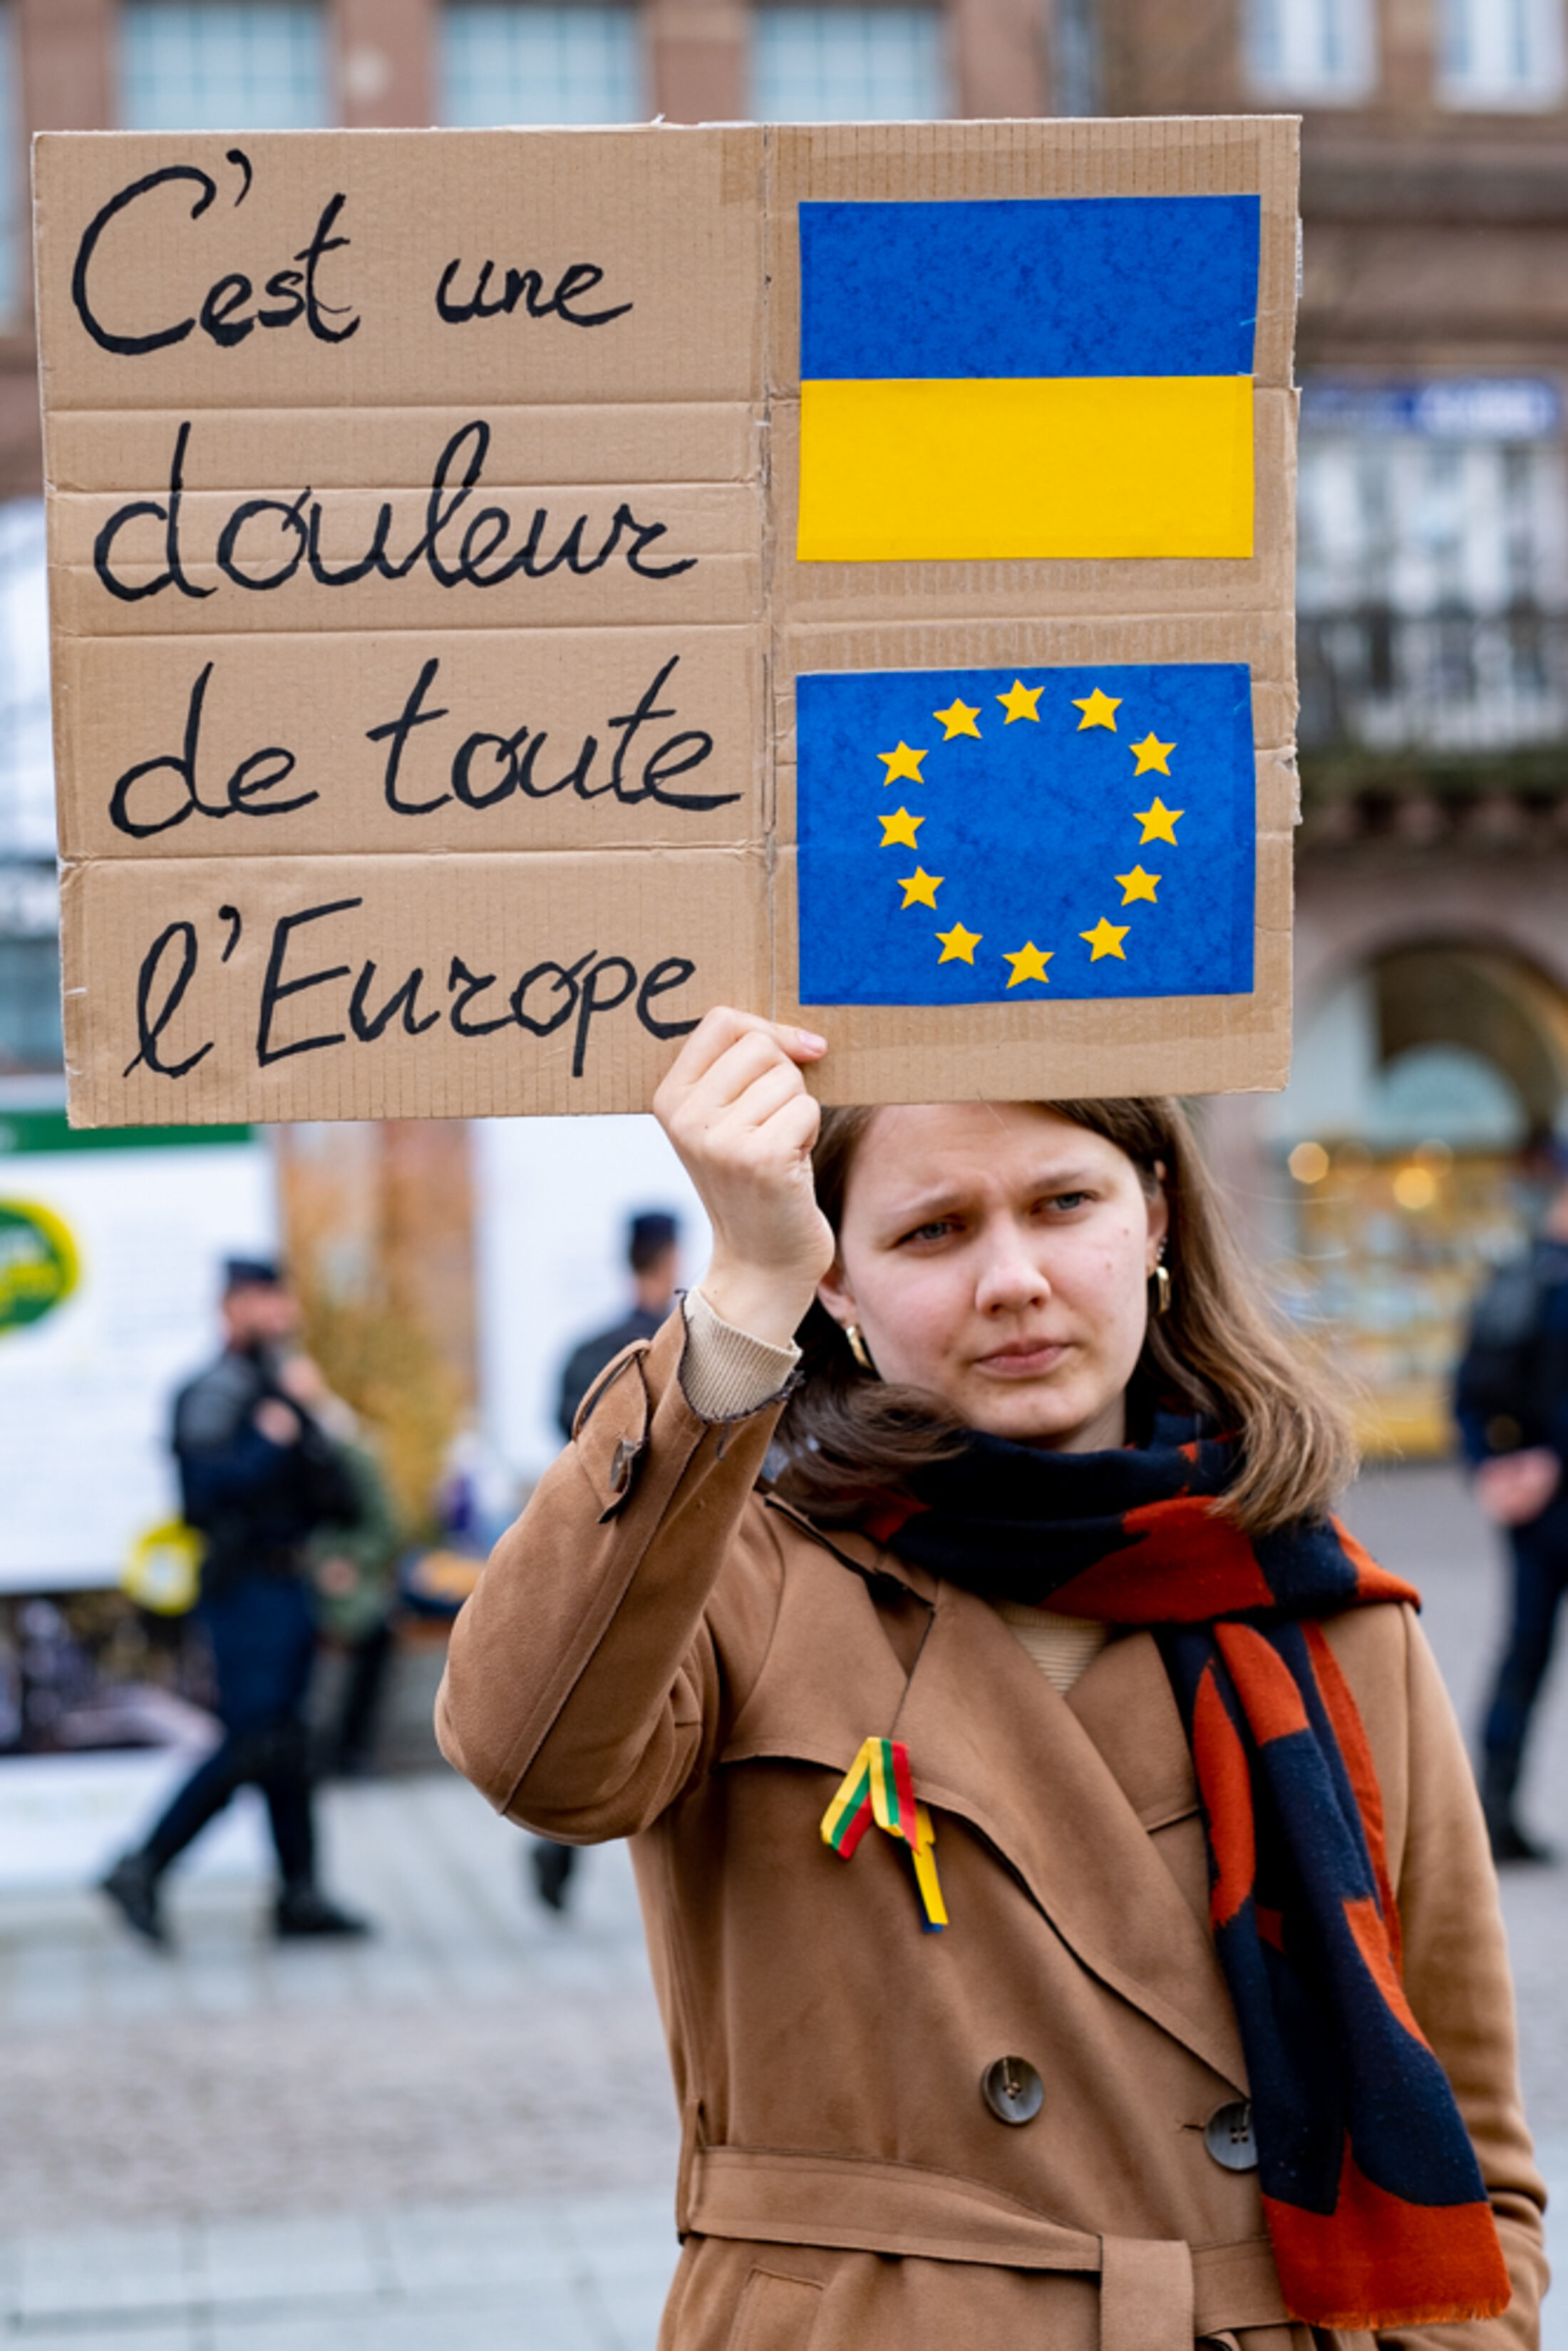 C'est une
douleur
de toute
l'Europe